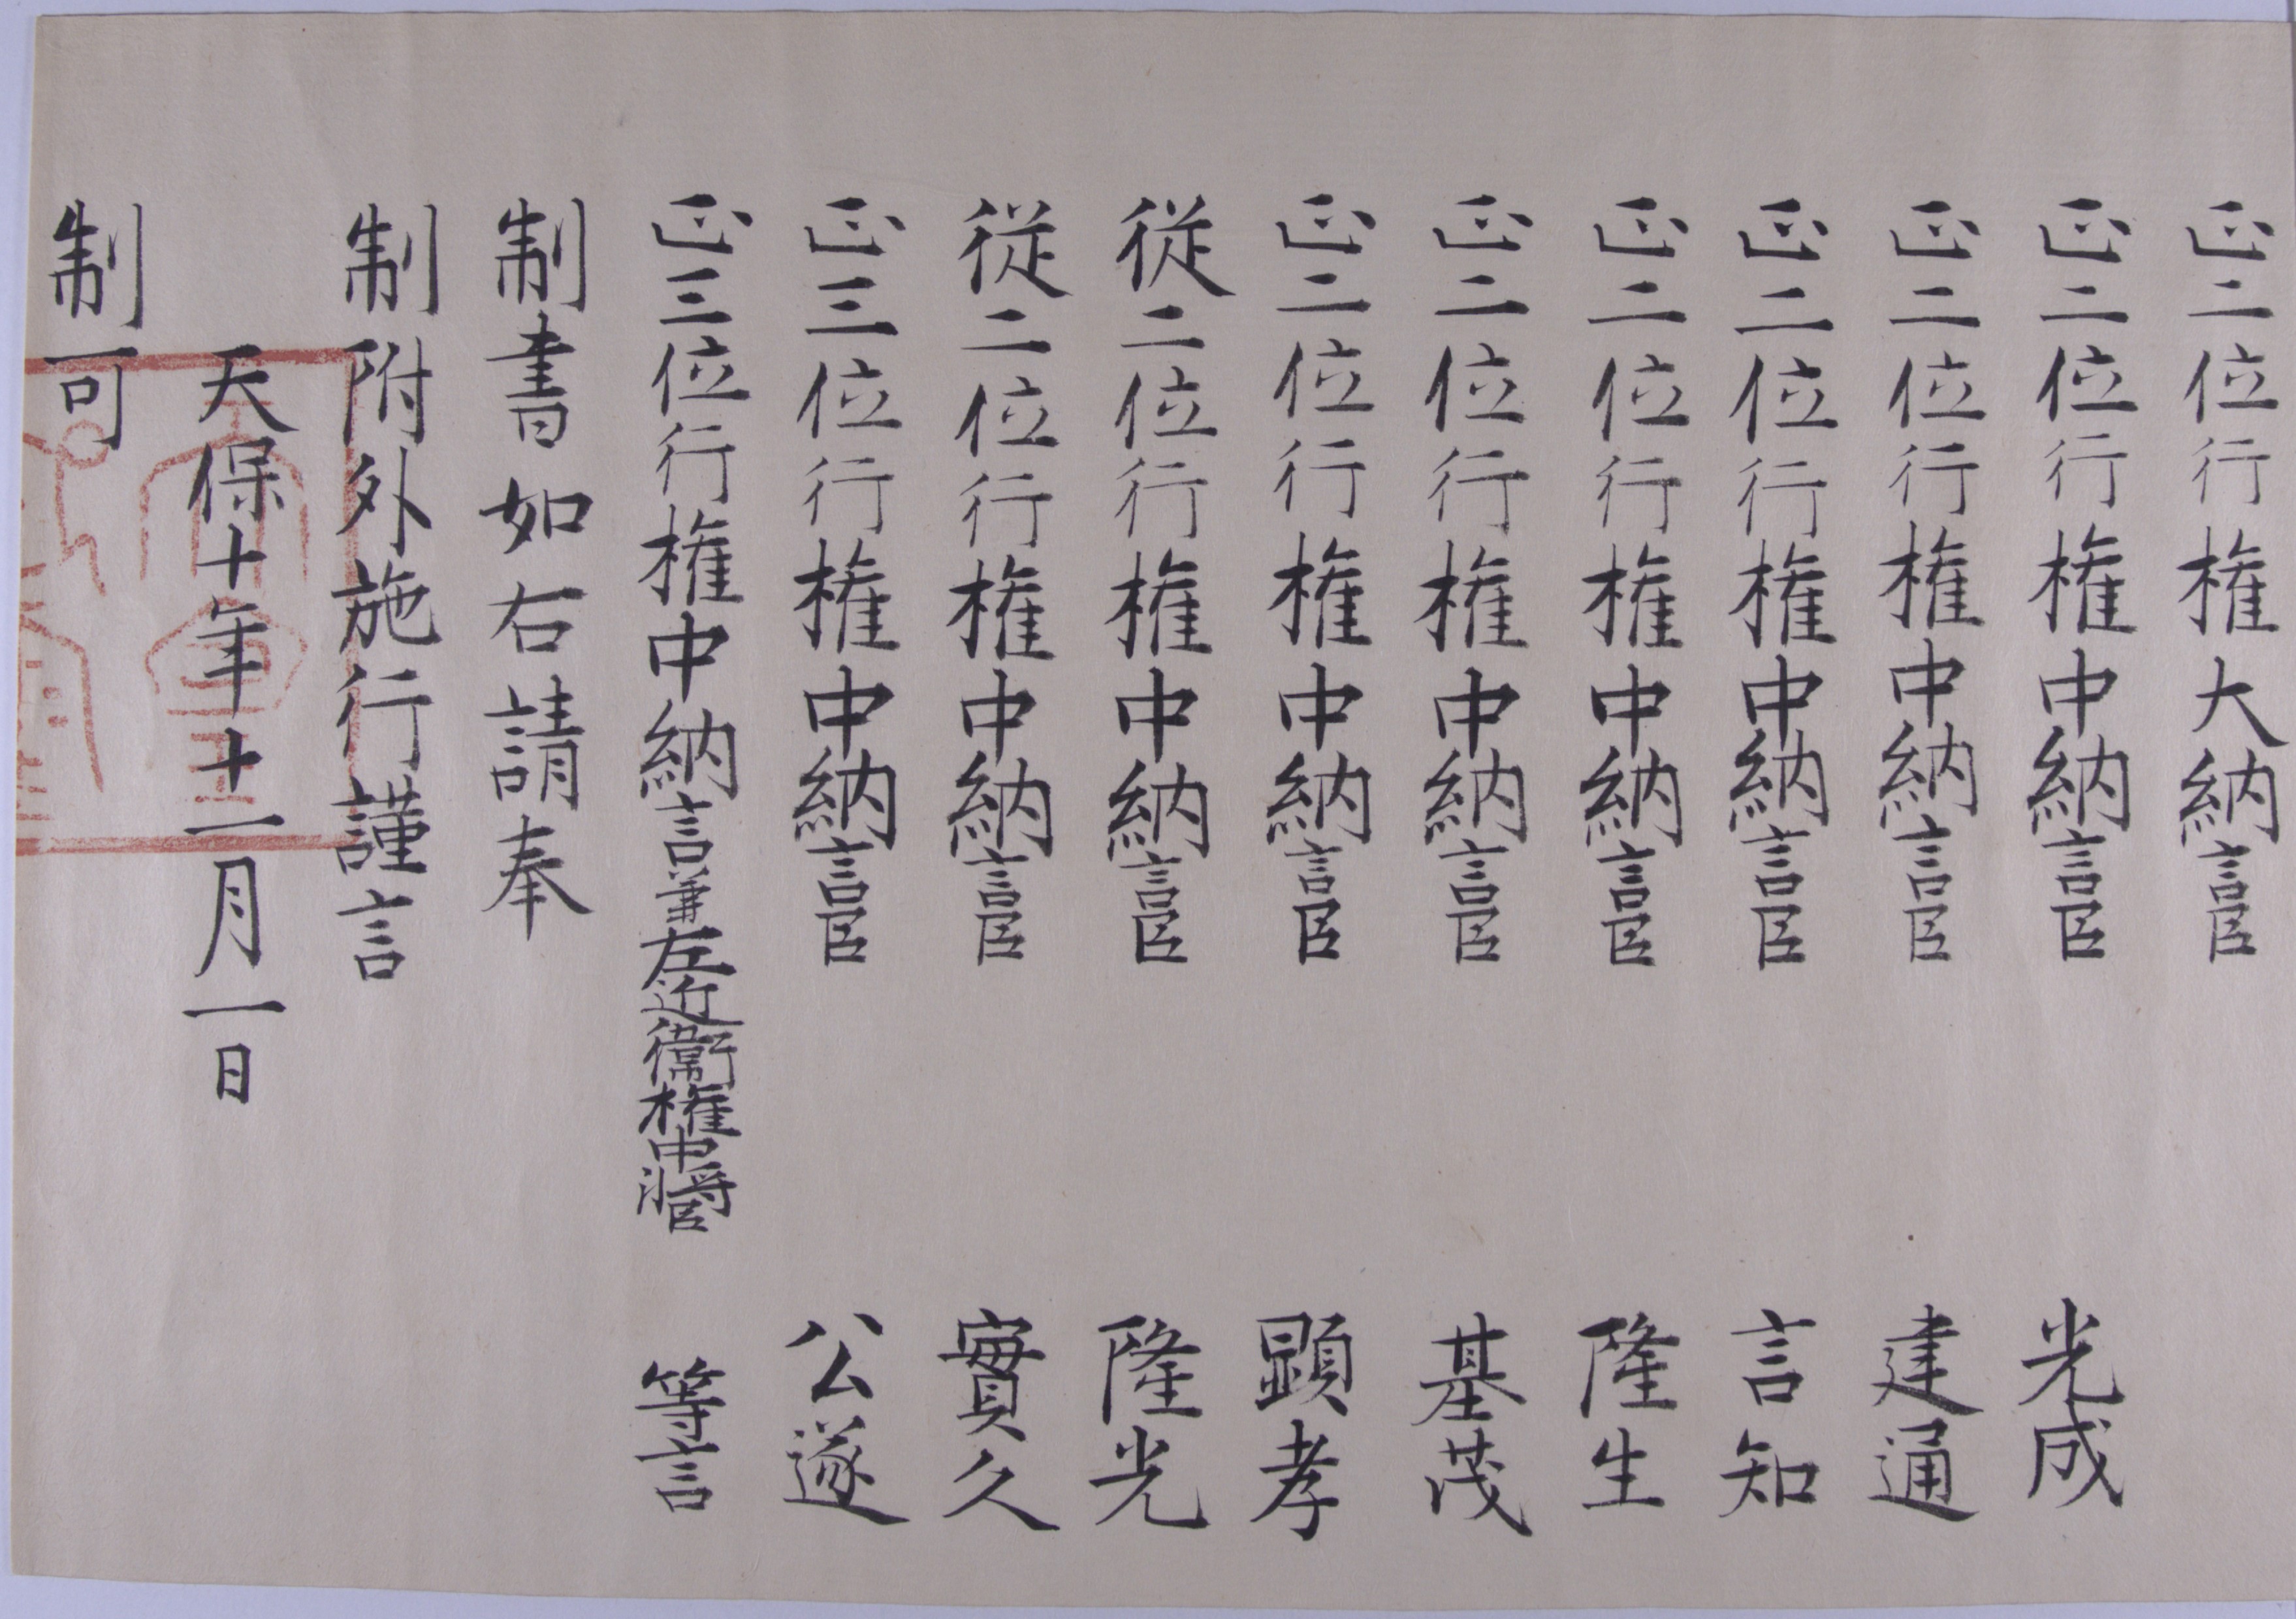 正二位行権大納言臣
正二位行権中納言臣光成
正二位行権中納言臣建通
正二位行権中納言臣言知
正二位行権中納言臣隆生
正二位行権中納言臣基茂
正二位行権中納言臣顕孝
従二位行権中納言臣隆光
従二位行権中納言臣實久
正三位行権中納言臣公遂
正三位行権中納言兼左近衛権中将臣等言
制書如右請奉
制附外施行謹言
天保十年十一月一日
制可